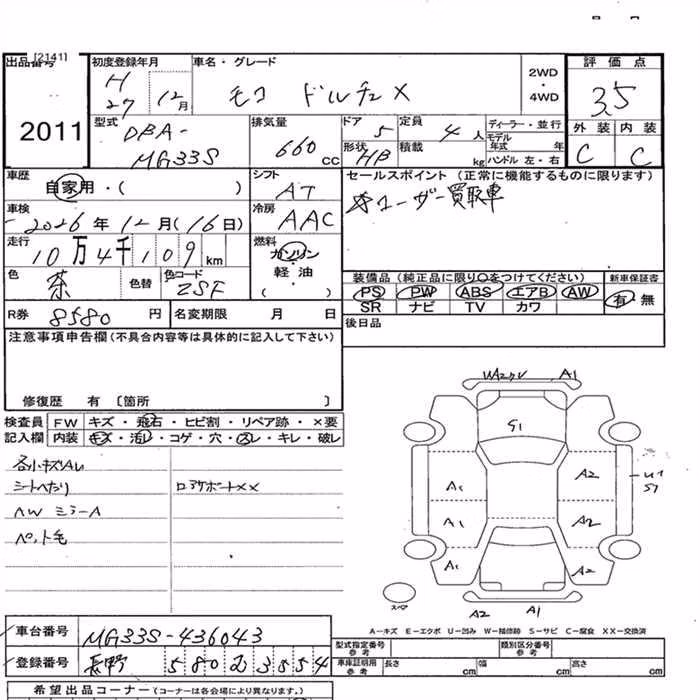 出品番号 [2141] 初度登録年月 車名・グレード 評価点
H 27 12月 モコ ドルチェX 2WD・4WD 3.5
2011 型式 DBA-MG33S 排気量 660cc ドア 5 定員 4人 ディーラー・並行 外装 内装
形状 HB 積載 kg モデル年式 年式 ハンドル 左・右 C C
車歴 自家用・( ) シフト AT セールスポイント (正常に機能するものに限ります)
車検 2026年12月(16日) 冷房 AAC ユーザー買取車
走行 10万4千109km 燃料 ガソリン・軽油・( )
色 茶 色替 色コード ZSF 装備品 (純正品に限り○をつけてください) 新車保証書
PS PW ABS エアB AW 有・無
SR ナビ TV カワ
R券 8580円 名変期限 月 日 後日品
注意事項申告欄 (不具合内容等は具体的に記入して下さい)
修復歴 有 〔箇所 〕
検査員 FW キズ・飛石・ヒビ割・リペア跡・×要
記入欄 内装 キズ・汚レ・コゲ・穴・スレ・キレ・破レ
各小キズAU
シートヘタリ ロアサポートXX
AW ミラーA
ペット毛
A1
G1
A1 A2
A1 A2
A1 A2
スペア A2 A1
A-キズ E-エクボ U-凹み W-補修跡 S-サビ C-腐食 XX-交換済
車台番号 MG33S-436043
登録番号 長野 580 2 3554
型式指定番号 参考 類別区分番号 参考
車庫証明用 参考 長さ cm 幅 cm 高さ cm
希望出品コーナー (コーナーは各会場により異なります。)